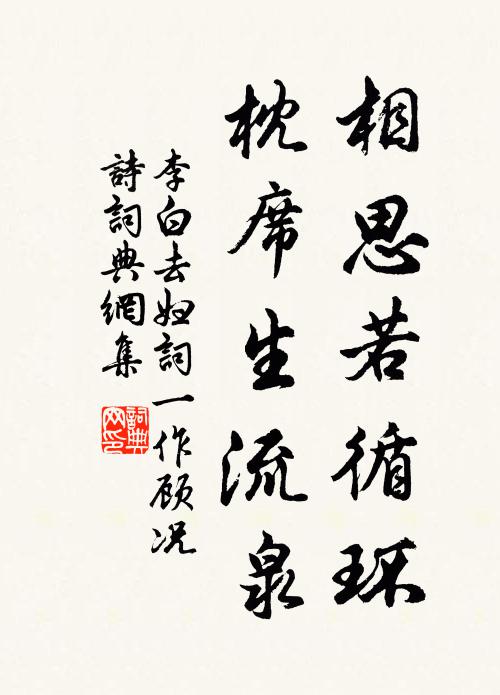 相思若循环
枕席生流泉
李白去妇詞一作顾况
詩詞典網集
詞典网印